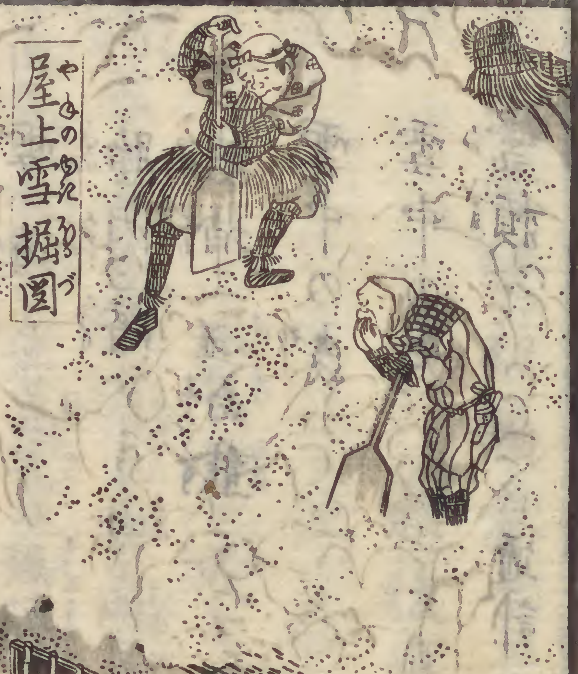 屋上雪掘図
やねのゆきほるづ